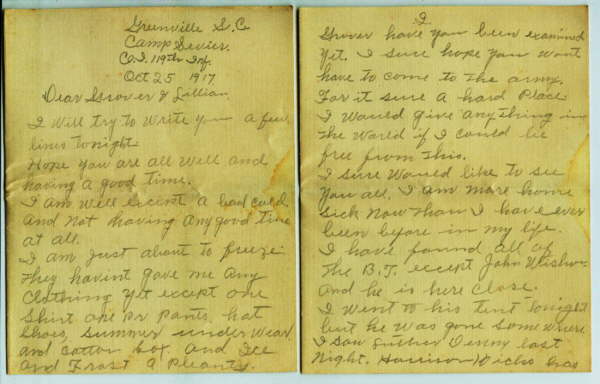 Greenville S.C.
Camp Sevier.
Co. I. 119th Inf.
Oct 25 1917
Dear Grover & Lillian.
I will try to write you a few
lines tonight
Hope you are all well and
having a good time.
I am well except a bad could
and not having any good time
at all.
I am just about to freeze
they havint gave me any
clothing yet except one
shirt one pr pants, hat
shoes, summer under wear
and cotton sox. and Ice
and Frost a pleanty.
2
Grover have you been examined
yet. I sure hope you wont
have to come to the army.
For it sure a hard place
I would give any thing in
the world if I could be
free from this.
I sure would like to see
you all. I am more home
sick now than I have ever
been before in my life.
I have found all of
the B.J. except John
and he is here close.
I went to his tent tonight
but he was gone some where
I saw Luther Denny last
night. Harrison Hicks has